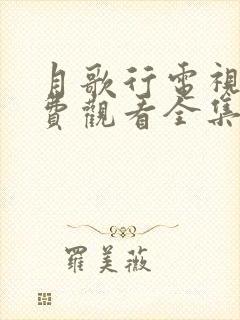 月歌行電視
費觀看全集
羅美薇